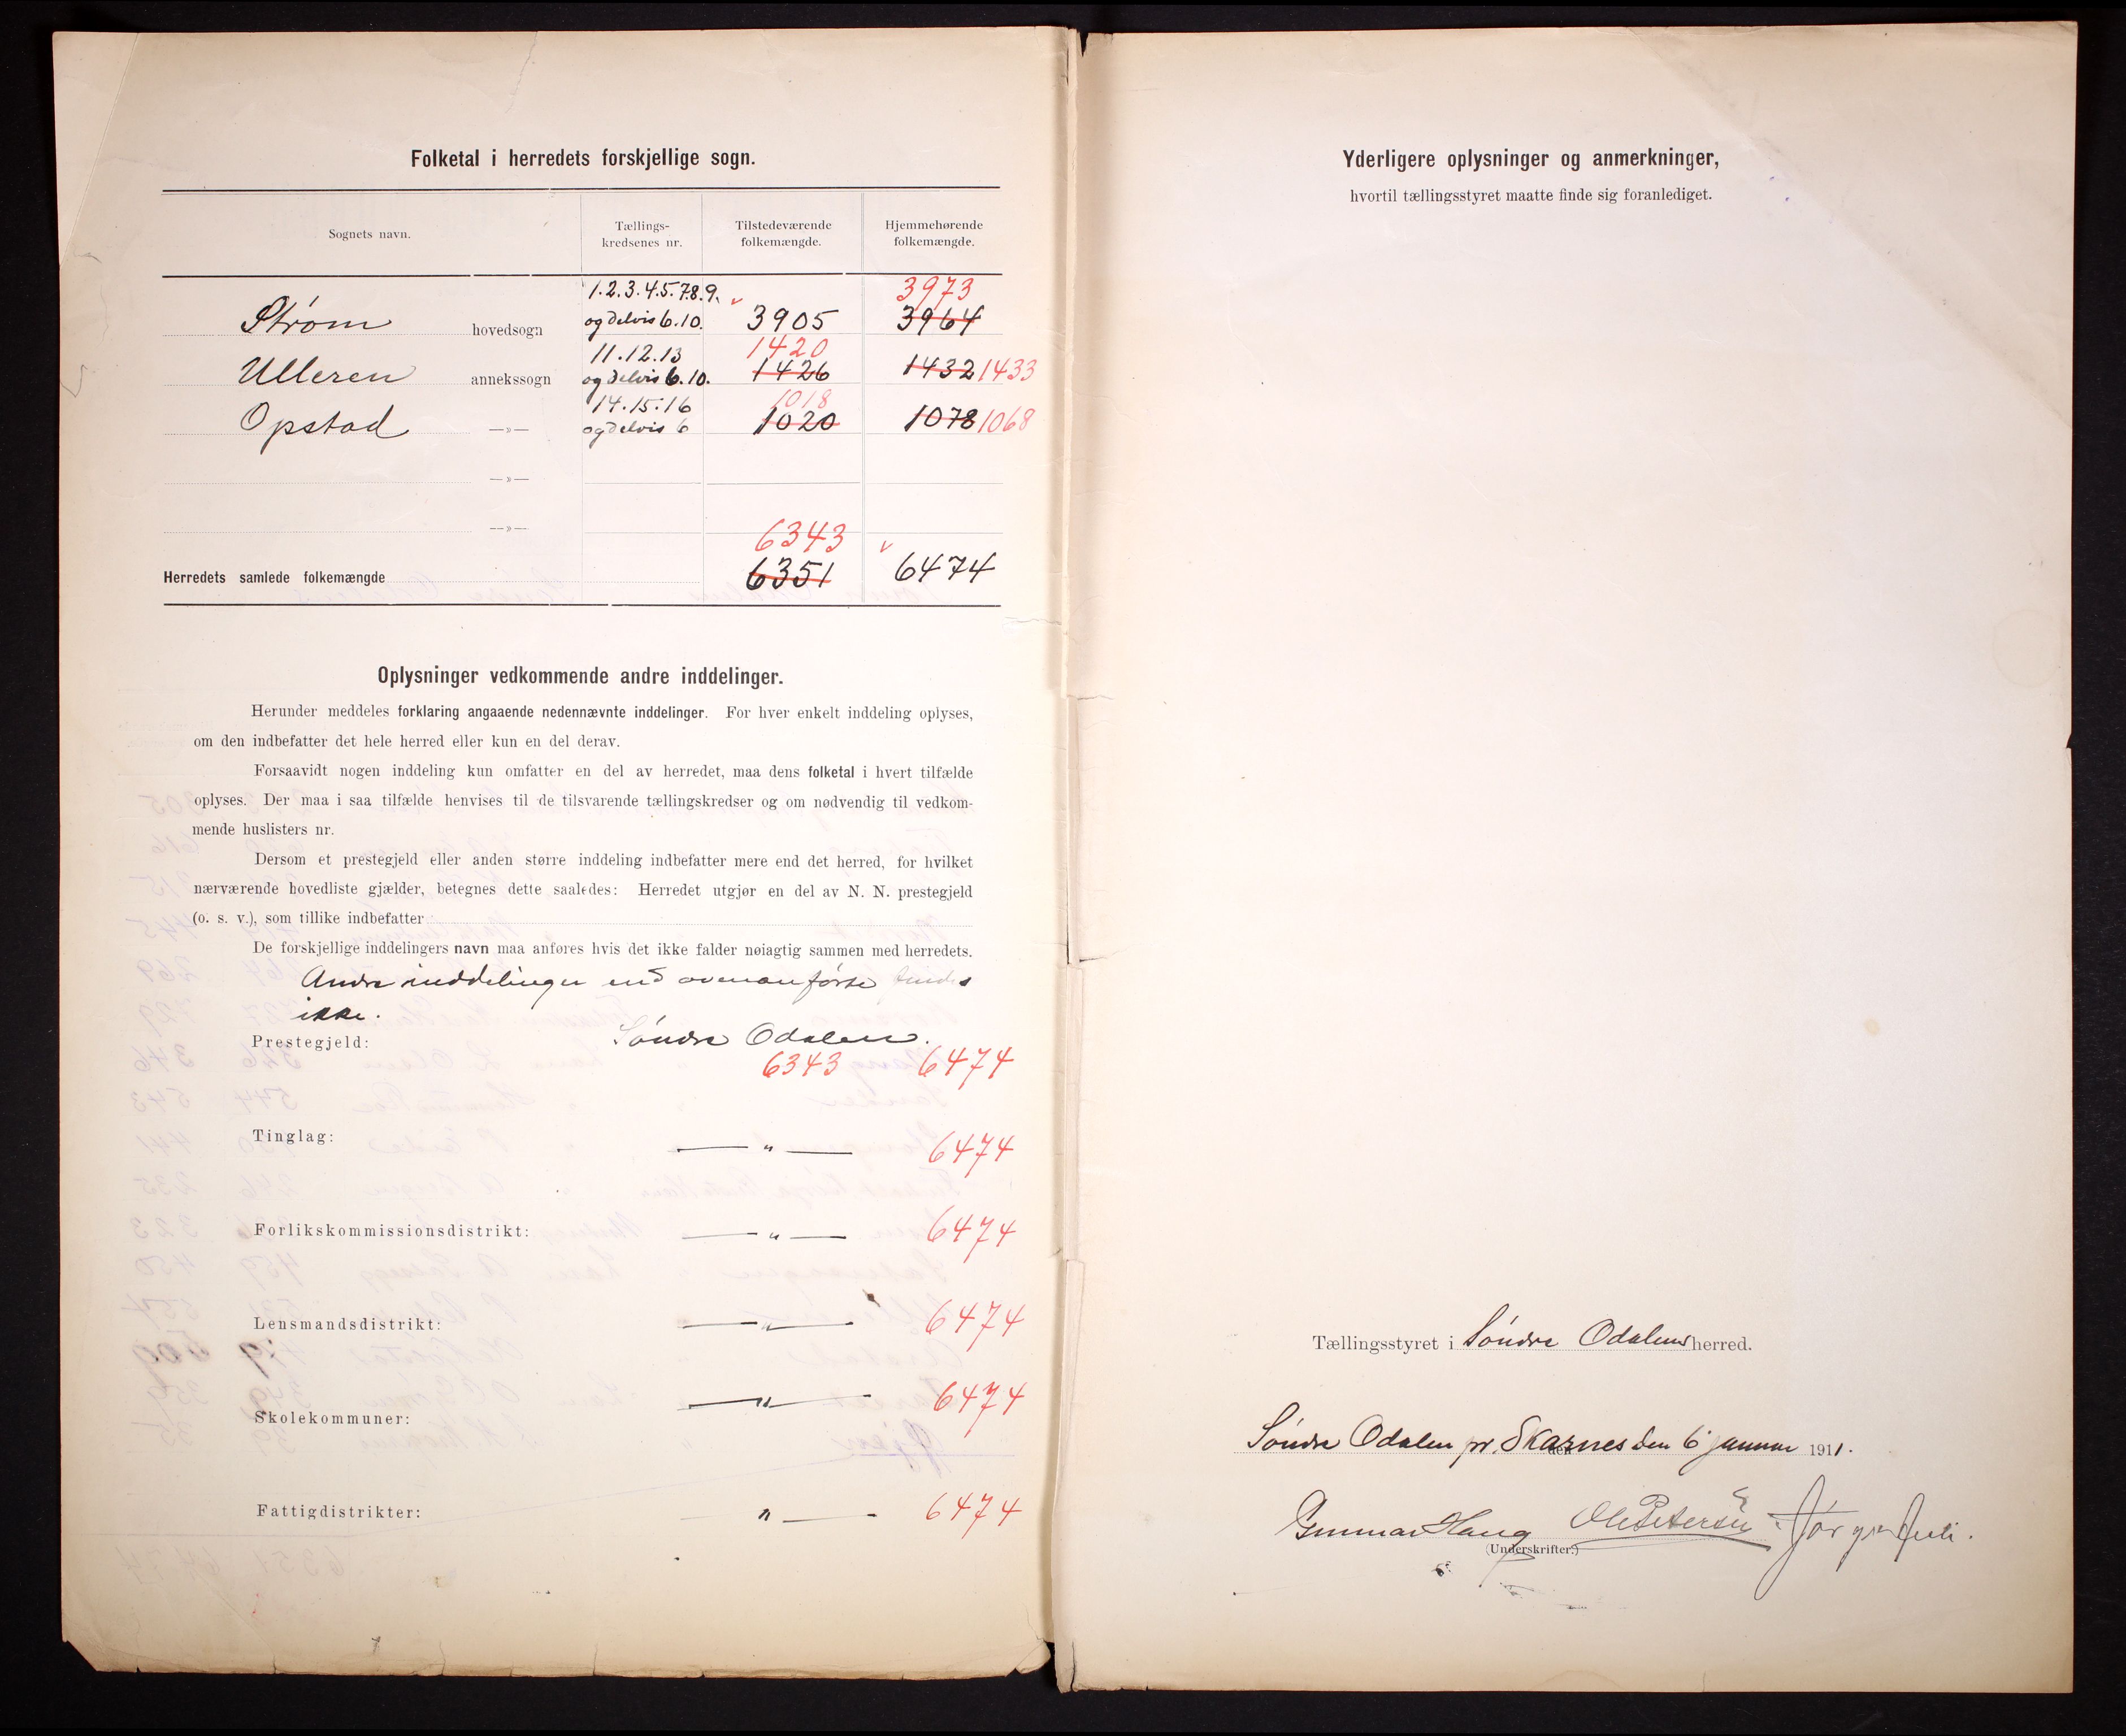 Folketal i herredets forskjellige sogn.
Sognets navn.
Tællings-
kredsenes nr.
Tilstedeværende
folkemængde.
Hjemmehørende
folkemængde.
1.2.3.4.5.7.8.9. 3973
Strøm hovedsogn og delvis 6.10. 3905 3964
11.12.13 1420
Ulleren annekssogn og delvis 6.10. 1426 1432 1433
14.15.16 1018
Opstad —»— og delvis 6 1020 1078 1068
—»—
—»—
6343
Herredets samlede folkemængde 6351 6474
Oplysninger vedkommende andre inddelinger.
Herunder meddeles forklaring angaaende nedennævnte inddelinger. For hver enkelt inddeling oplyses,
om den indbefatter det hele herred eller kun en del derav.
Forsaavidt nogen inddeling kun omfatter en del av herredet, maa dens folketal i hvert tilfælde
oplyses. Der maa i saa tilfælde henvises til de tilsvarende tællingskredser og om nødvendig til vedkom-
mende huslisters nr.
Dersom et prestegjeld eller anden større inddeling indbefatter mere end det herred, for hvilket
nærværende hovedliste gjælder, betegnes dette saaledes: Herredet utgjør en del av N. N. prestegjeld
(o. s. v.), som tillike indbefatter
De forskjellige inddelingers navn maa anføres hvis det ikke falder nøiagtig sammen med herredets.
Andre inddelinger end ovenanførte findes
ikke.
Prestegjeld: Søndre Odalen.
6343 6474
Tinglag: —"— 6474
Forlikskommissionsdistrikt: —"— 6474
Lensmandsdistrikt: —"— 6474
Skolekommuner: —"— 6474
Fattigdistrikter: "— 6474
Yderligere oplysninger og anmerkninger,
hvortil tællingsstyret maatte finde sig foranlediget.
Tællingsstyret i Søndre Odalens herred.
Søndre Odalen pr. Skarnes den den 6 januar 1911.
Gunnar Haug Ole Petersen Jørgen
(Underskrifter:)